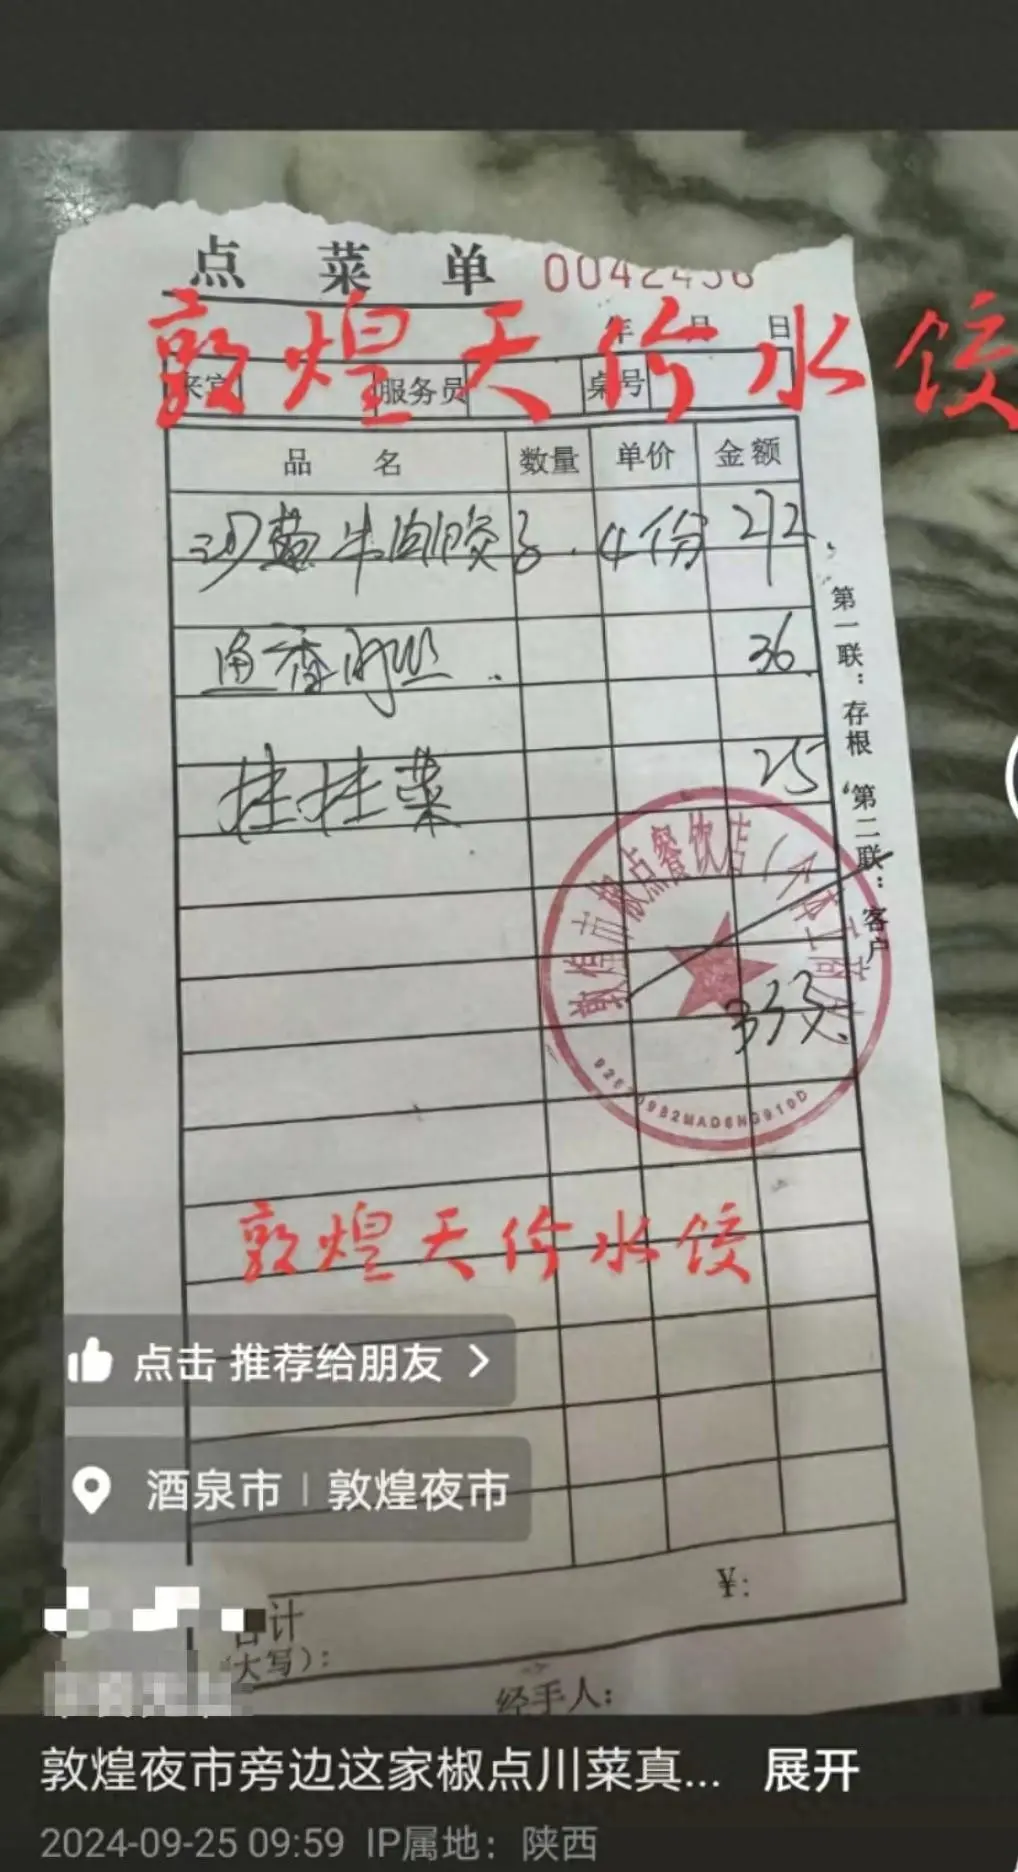 点菜单 0042456
年 月 日
敦煌天价水饺
来宾 服务员 桌号
品名 数量 单价 金额
沙葱牛肉饺子. 4份 272
鱼香肉丝. 36
挂挂菜 25
333元
第一联：存根 第二联：客户
敦煌市椒点餐饮店
敦煌天价水饺
点击 推荐给朋友 >
酒泉市 | 敦煌夜市
合计 ¥:
(大写):
经手人:
敦煌夜市旁边这家椒点川菜真... 展开
2024-09-25 09:59 IP属地：陕西